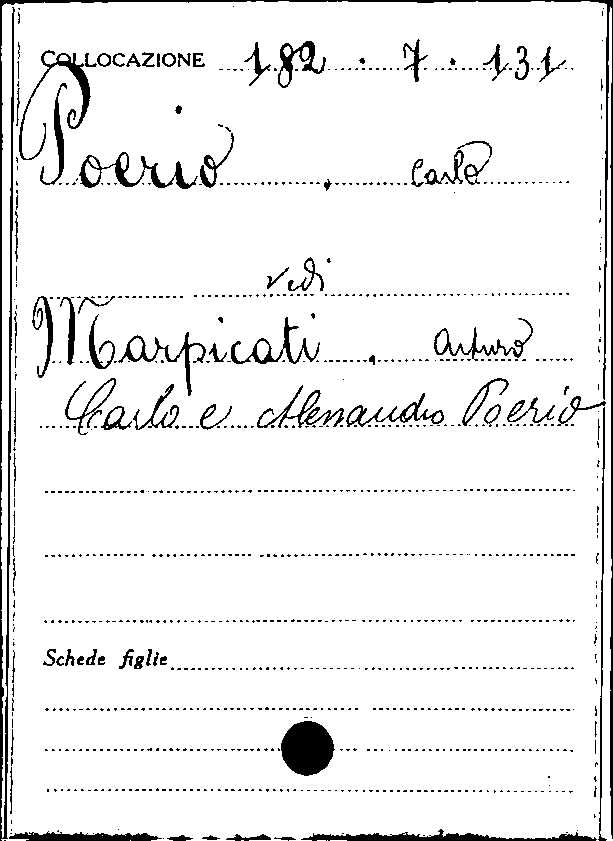 COLLOCAZIONE 182 . 7 . 131
Poerio , Carlo
vedi
Marpicati , Arturo
Carlo e Alessandro Poerio
Schede figlie